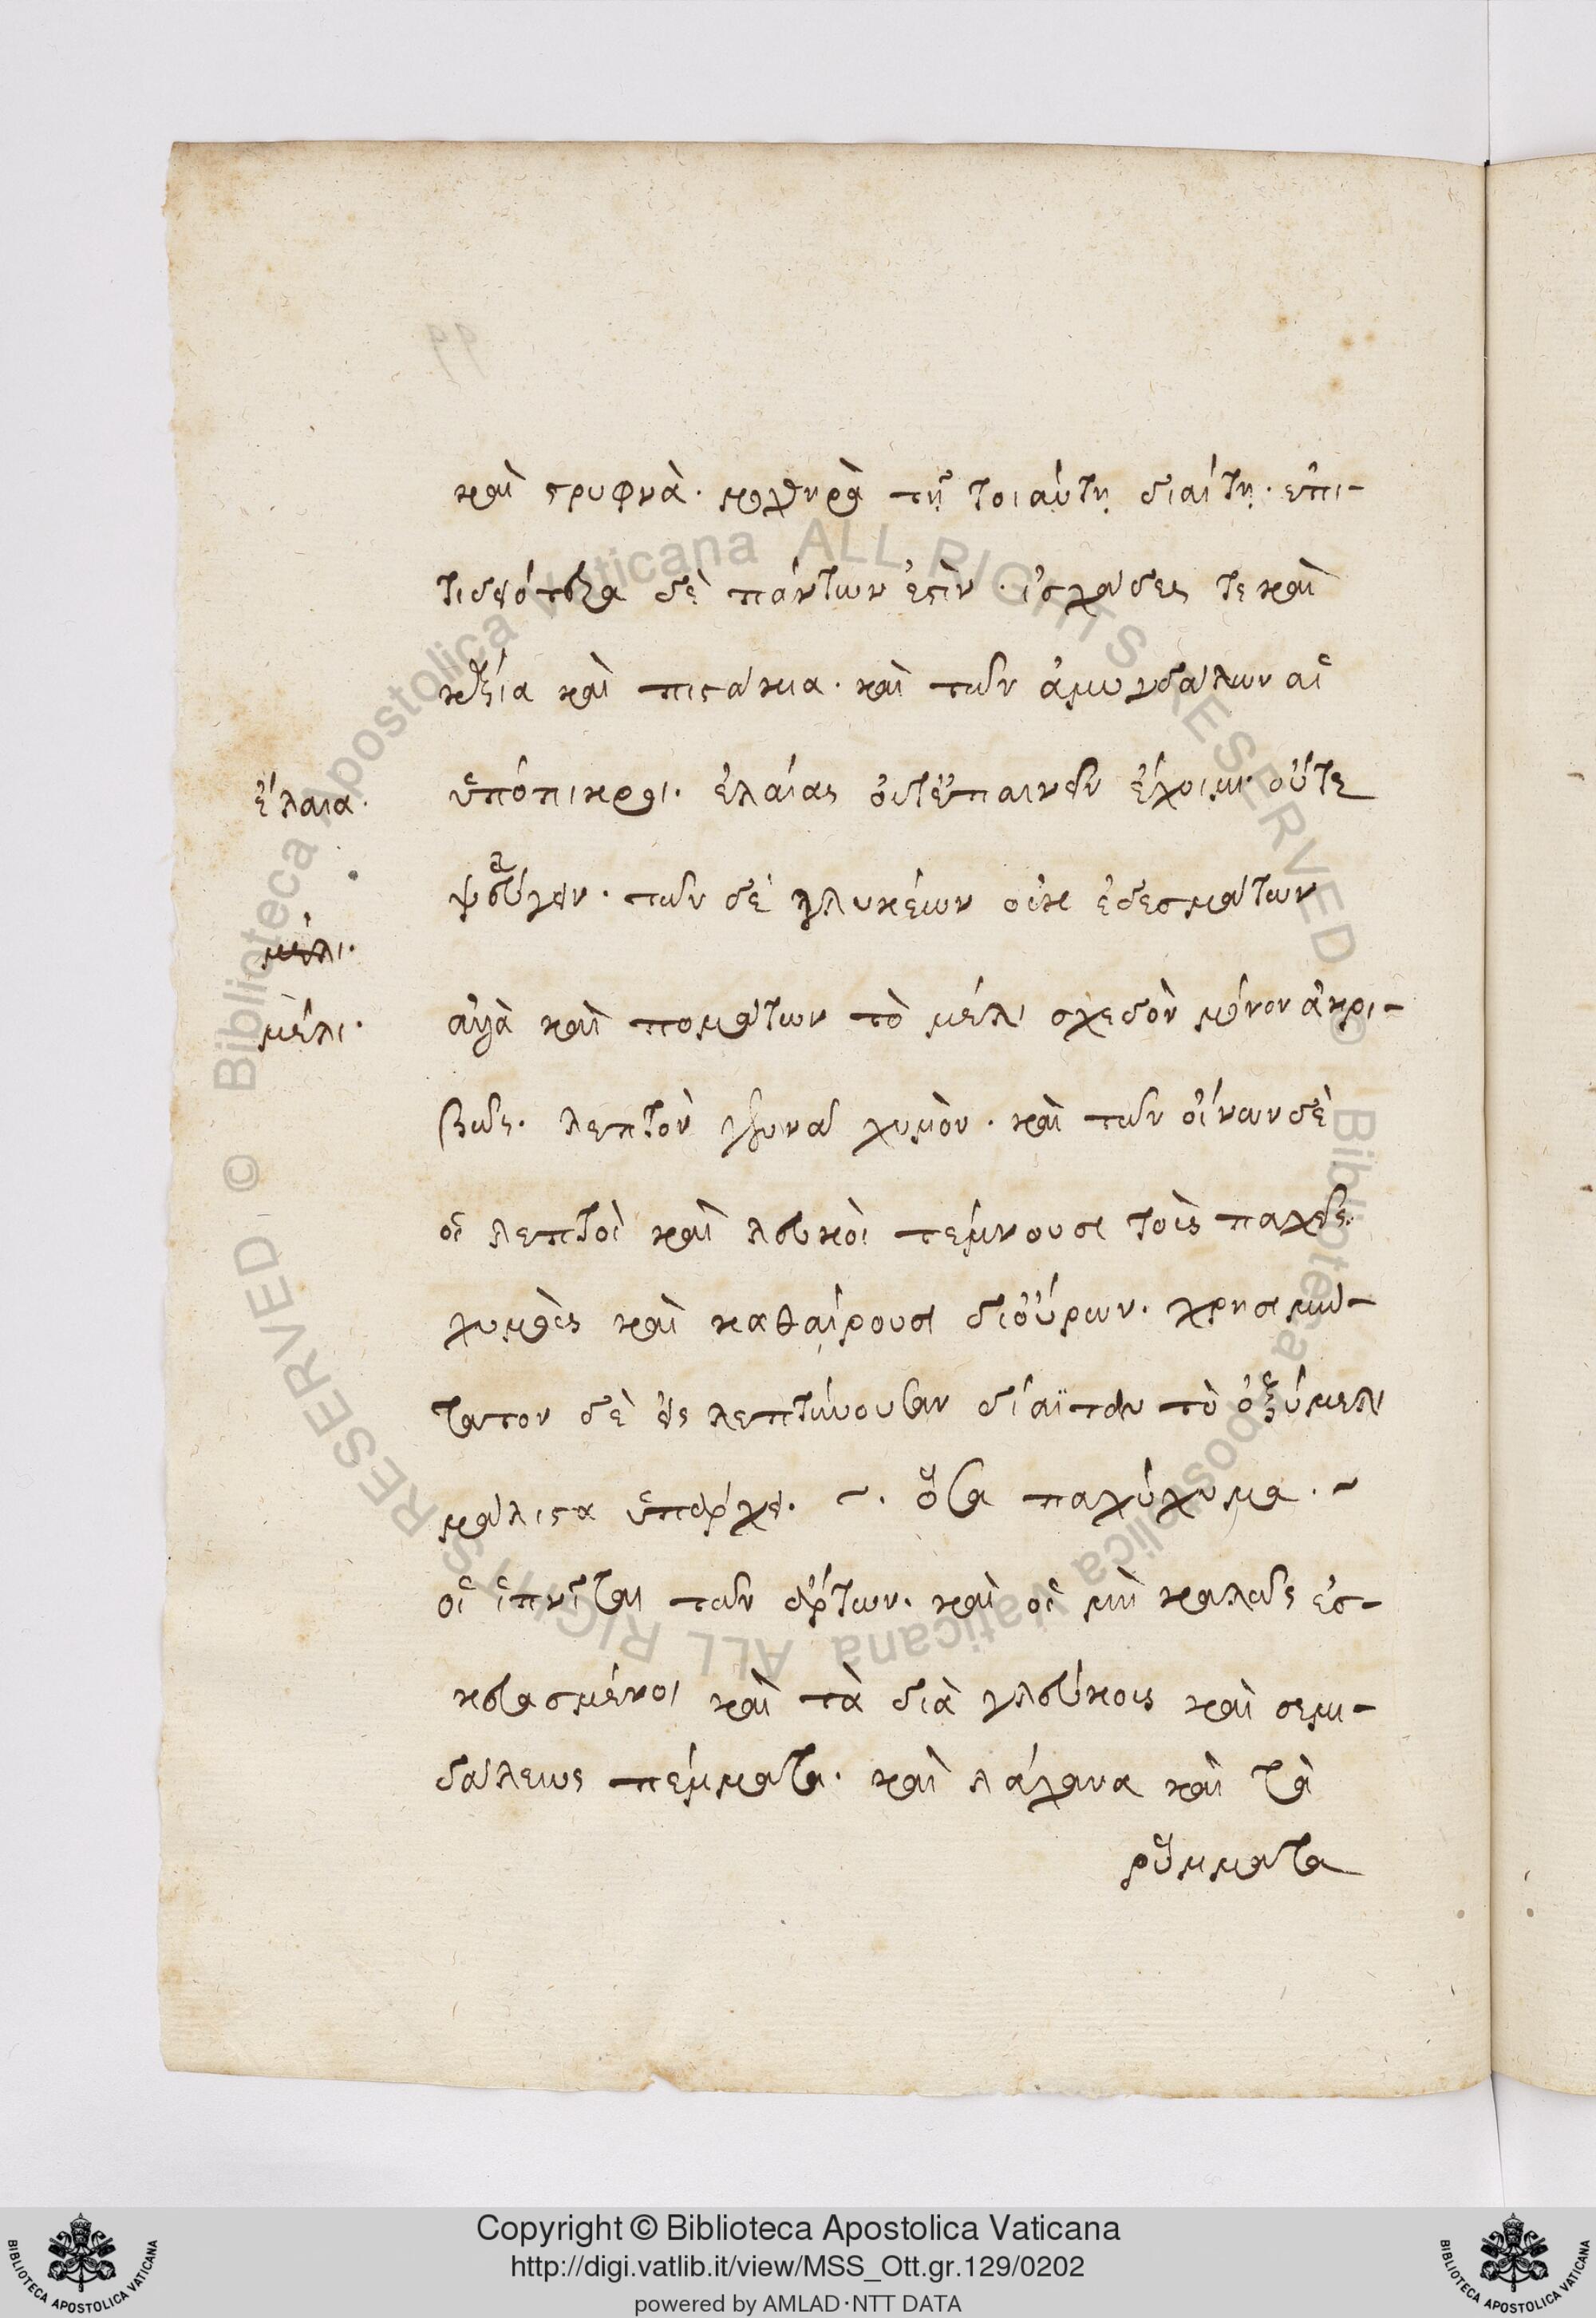 καὶ στρυφνὰ. μοχθηρὰ τῇ τοιαύτῃ διαίτῃ. ἐπι-
τιδειότερα δὲ πάντων ἐστὶν. ἰσχάδες τε καὶ
καὶ πιστάκια. καὶ τῶν ἀμυγδάλων αἱ
ἔλαια. ὑπόπικροι. ἐλαίας οὔτ' ἔπαινεῖν ἔχοιμι οὔτε
ψέγειν. τῶν δὲ γλυκέων οὐκ ἐδεσμάτων
μέλι.
μέλι. ἀλλὰ καὶ πομάτων τὸ μέλι σχεδὸν μόνον ἀκρι-
βῶς. λεπτὸν γεννᾶ χυμὸν. καὶ τῶν οἴνων δὲ
οἱ λεπτοὶ καὶ λευκοὶ τέμνουσι τοὺς παχεῖς
χυμοὺς καὶ καθαίρουσι δι' οὔρων. χρησιμώ-
τατον δὲ εἰς λεπτύνουσαν δίαϊταν τὸ ὀξύμελι
μάλιστα ὑπάρχει. ~. ὅσα παχύχυμα. ~
οἱ ἰπνῖται τῶν ἄρτων. καὶ οἱ μὴ καλῶς ἐσ-
κευασμένοι καὶ τὰ διὰ γλεύκους καὶ σεμι-
δάλεως πέμματα. καὶ λάγανα καὶ τὰ
ῥύμματα
Copyright © Biblioteca Apostolica Vaticana
http://digi.vatlib.it/view/MSS_Ott.gr.129/0202
powered by AMLAD·NTT DATA
BIBLIOTECA APOSTOLICA VATICANA
BIBLIOTECA APOSTOLICA VATICANA
© Biblioteca Apostolica Vaticana ALL RIGHTS RESERVED © Biblioteca Apostolica Vaticana ALL RIGHTS RESERVED